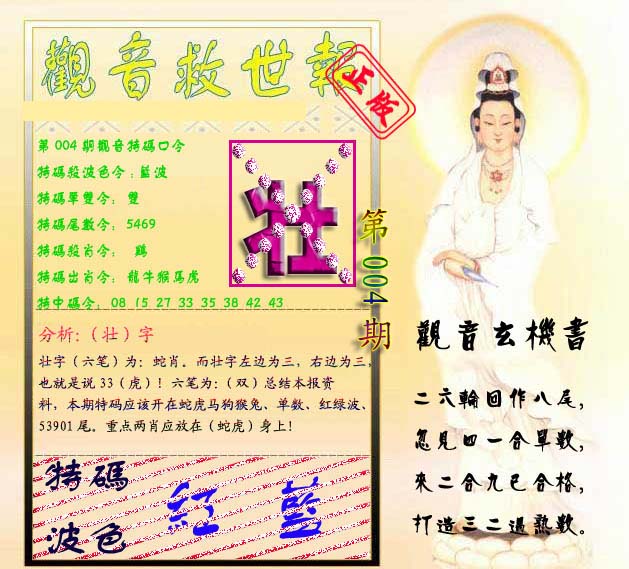 觀音救世報
正版
第004期觀音特碼口令
特碼殺波色令:藍波
特碼單雙令: 雙
特碼尾數令: 5469
特碼殺肖令: 鷄
特碼出肖令: 龍牛猴馬虎
特中碼令: 08 15 27 33 35 38 42 43
壮
第004期
分析:（壮）字
壮字（六笔）为：蛇肖。而壮字左边为三，右边为三，
也就是说33（虎）！六笔为：（双）总结本报资
料，本期特码应该开在蛇虎马狗猴兔、单数、红绿波、
53901尾。重点两肖应放在（蛇虎）身上！
特碼
波色
紅 藍
觀音玄機書
二六輪回作八尾，
忽見四一合單數，
來二合九已合格，
打造三二過熟數。